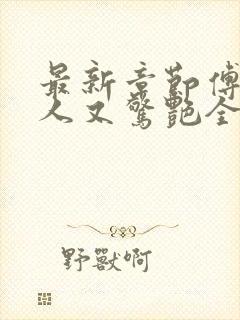 最新章節傅
人又驚艷全
野獸啊